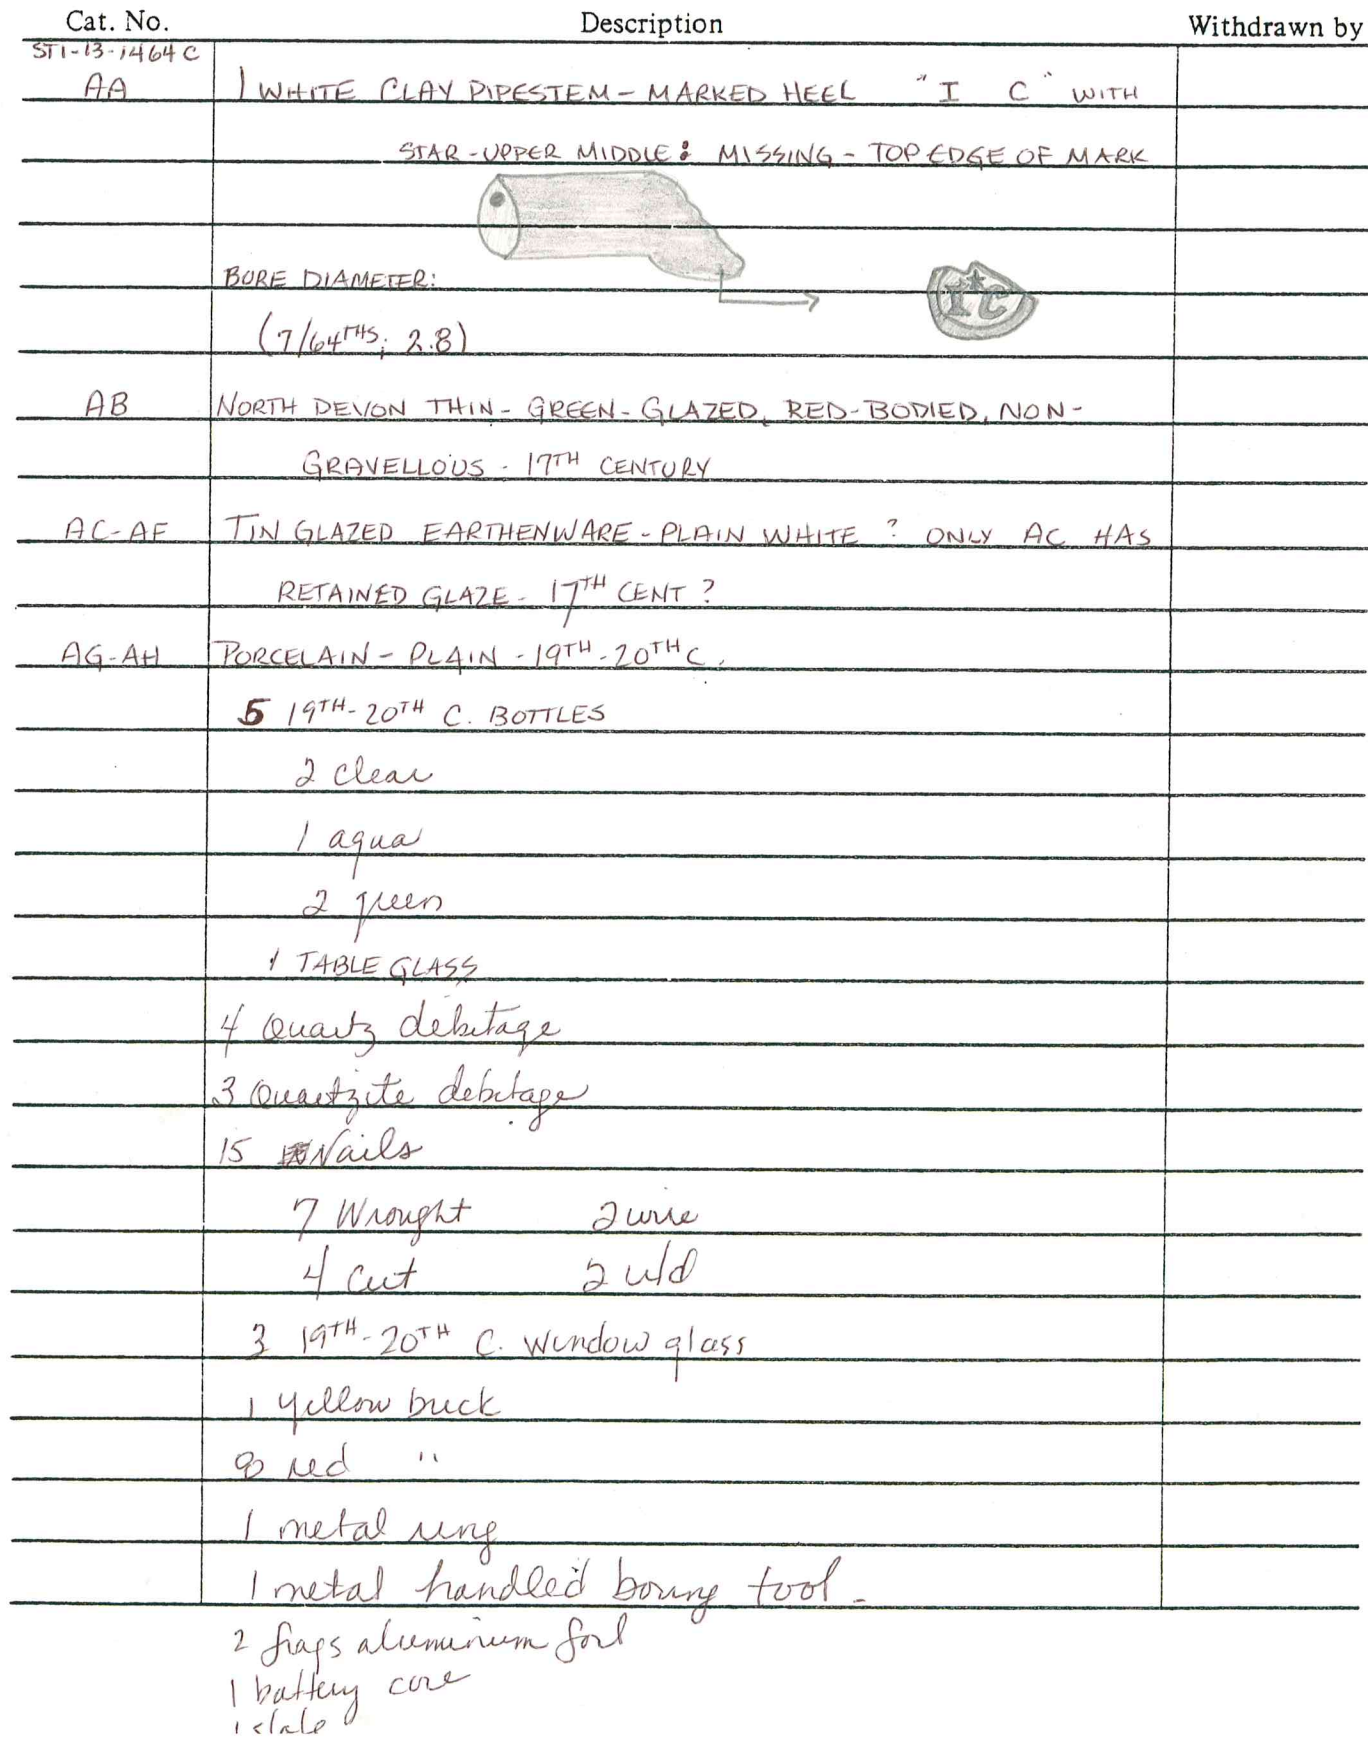 Cat. No. Description Withdrawn by
ST1-13-1464C
AA 1 WHITE CLAY PIPESTEM - MARKED HEEL "I C" WITH
STAR - UPPER MIDDLE: MISSING - TOP EDGE OF MARK
BORE DIAMETER:
I*C
(7/64THS; 2.8)
AB NORTH DEVON THIN - GREEN - GLAZED, RED-BODIED, NON-
GRAVELLOUS - 17TH CENTURY
AC-AF TIN GLAZED EARTHENWARE - PLAIN WHITE? ONLY AC HAS
RETAINED GLAZE - 17TH CENT?
AG-AH PORCELAIN - PLAIN - 19TH-20TH C.
5 19TH-20TH C. BOTTLES
2 clear
1 aqua
2 green
1 TABLE GLASS
4 Quartz debitage
3 Quartzite debitage
15 Nails
7 Wrought 2 wire
4 cut 2 u/d
3 19TH-20TH C. window glass
1 yellow brick
8 red "
1 metal ring
1 metal handled boring tool -
2 frags aluminum foil
1 battery core
1 slate